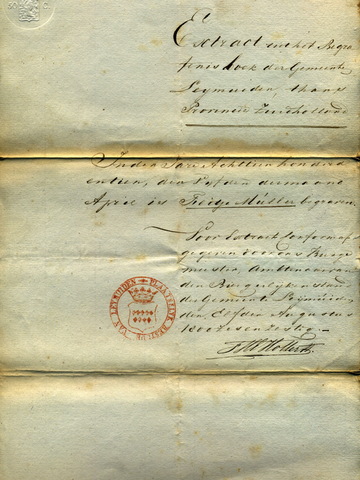 50 C.
Extract uit het Begra
fenis boek der Gemeente
Leymuiden, thans
Provincie Zuidholland
In den Jare Achttienhonderd
en tien, den Vyfden der maand
April is Geertje Muller begraven.
Voor Extract conform af
gegeven door ons Burge
meester, Ambtenaar van
den Burgerlyken stand
der Gemeente Leymuiden
den Elfden Augustus
1800 zes en zestig.
PLAATSELYK BESTUUR VAN LEYMUIDEN